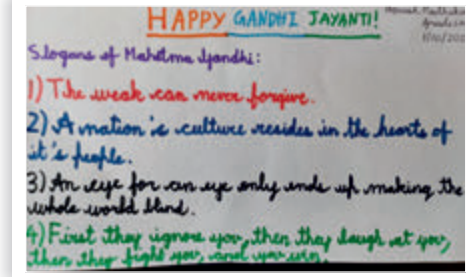 HAPPY GANDHI JAYANTI!
Slogans of Mahatma Gandhi:
1) The weak can never forgive.
2) A nation's culture resides in the hearts of
it's people.
3) An eye for an eye only ends up making the
whole world blind.
4) First they ignore you, then they laugh at you,
then they fight you, and you win.